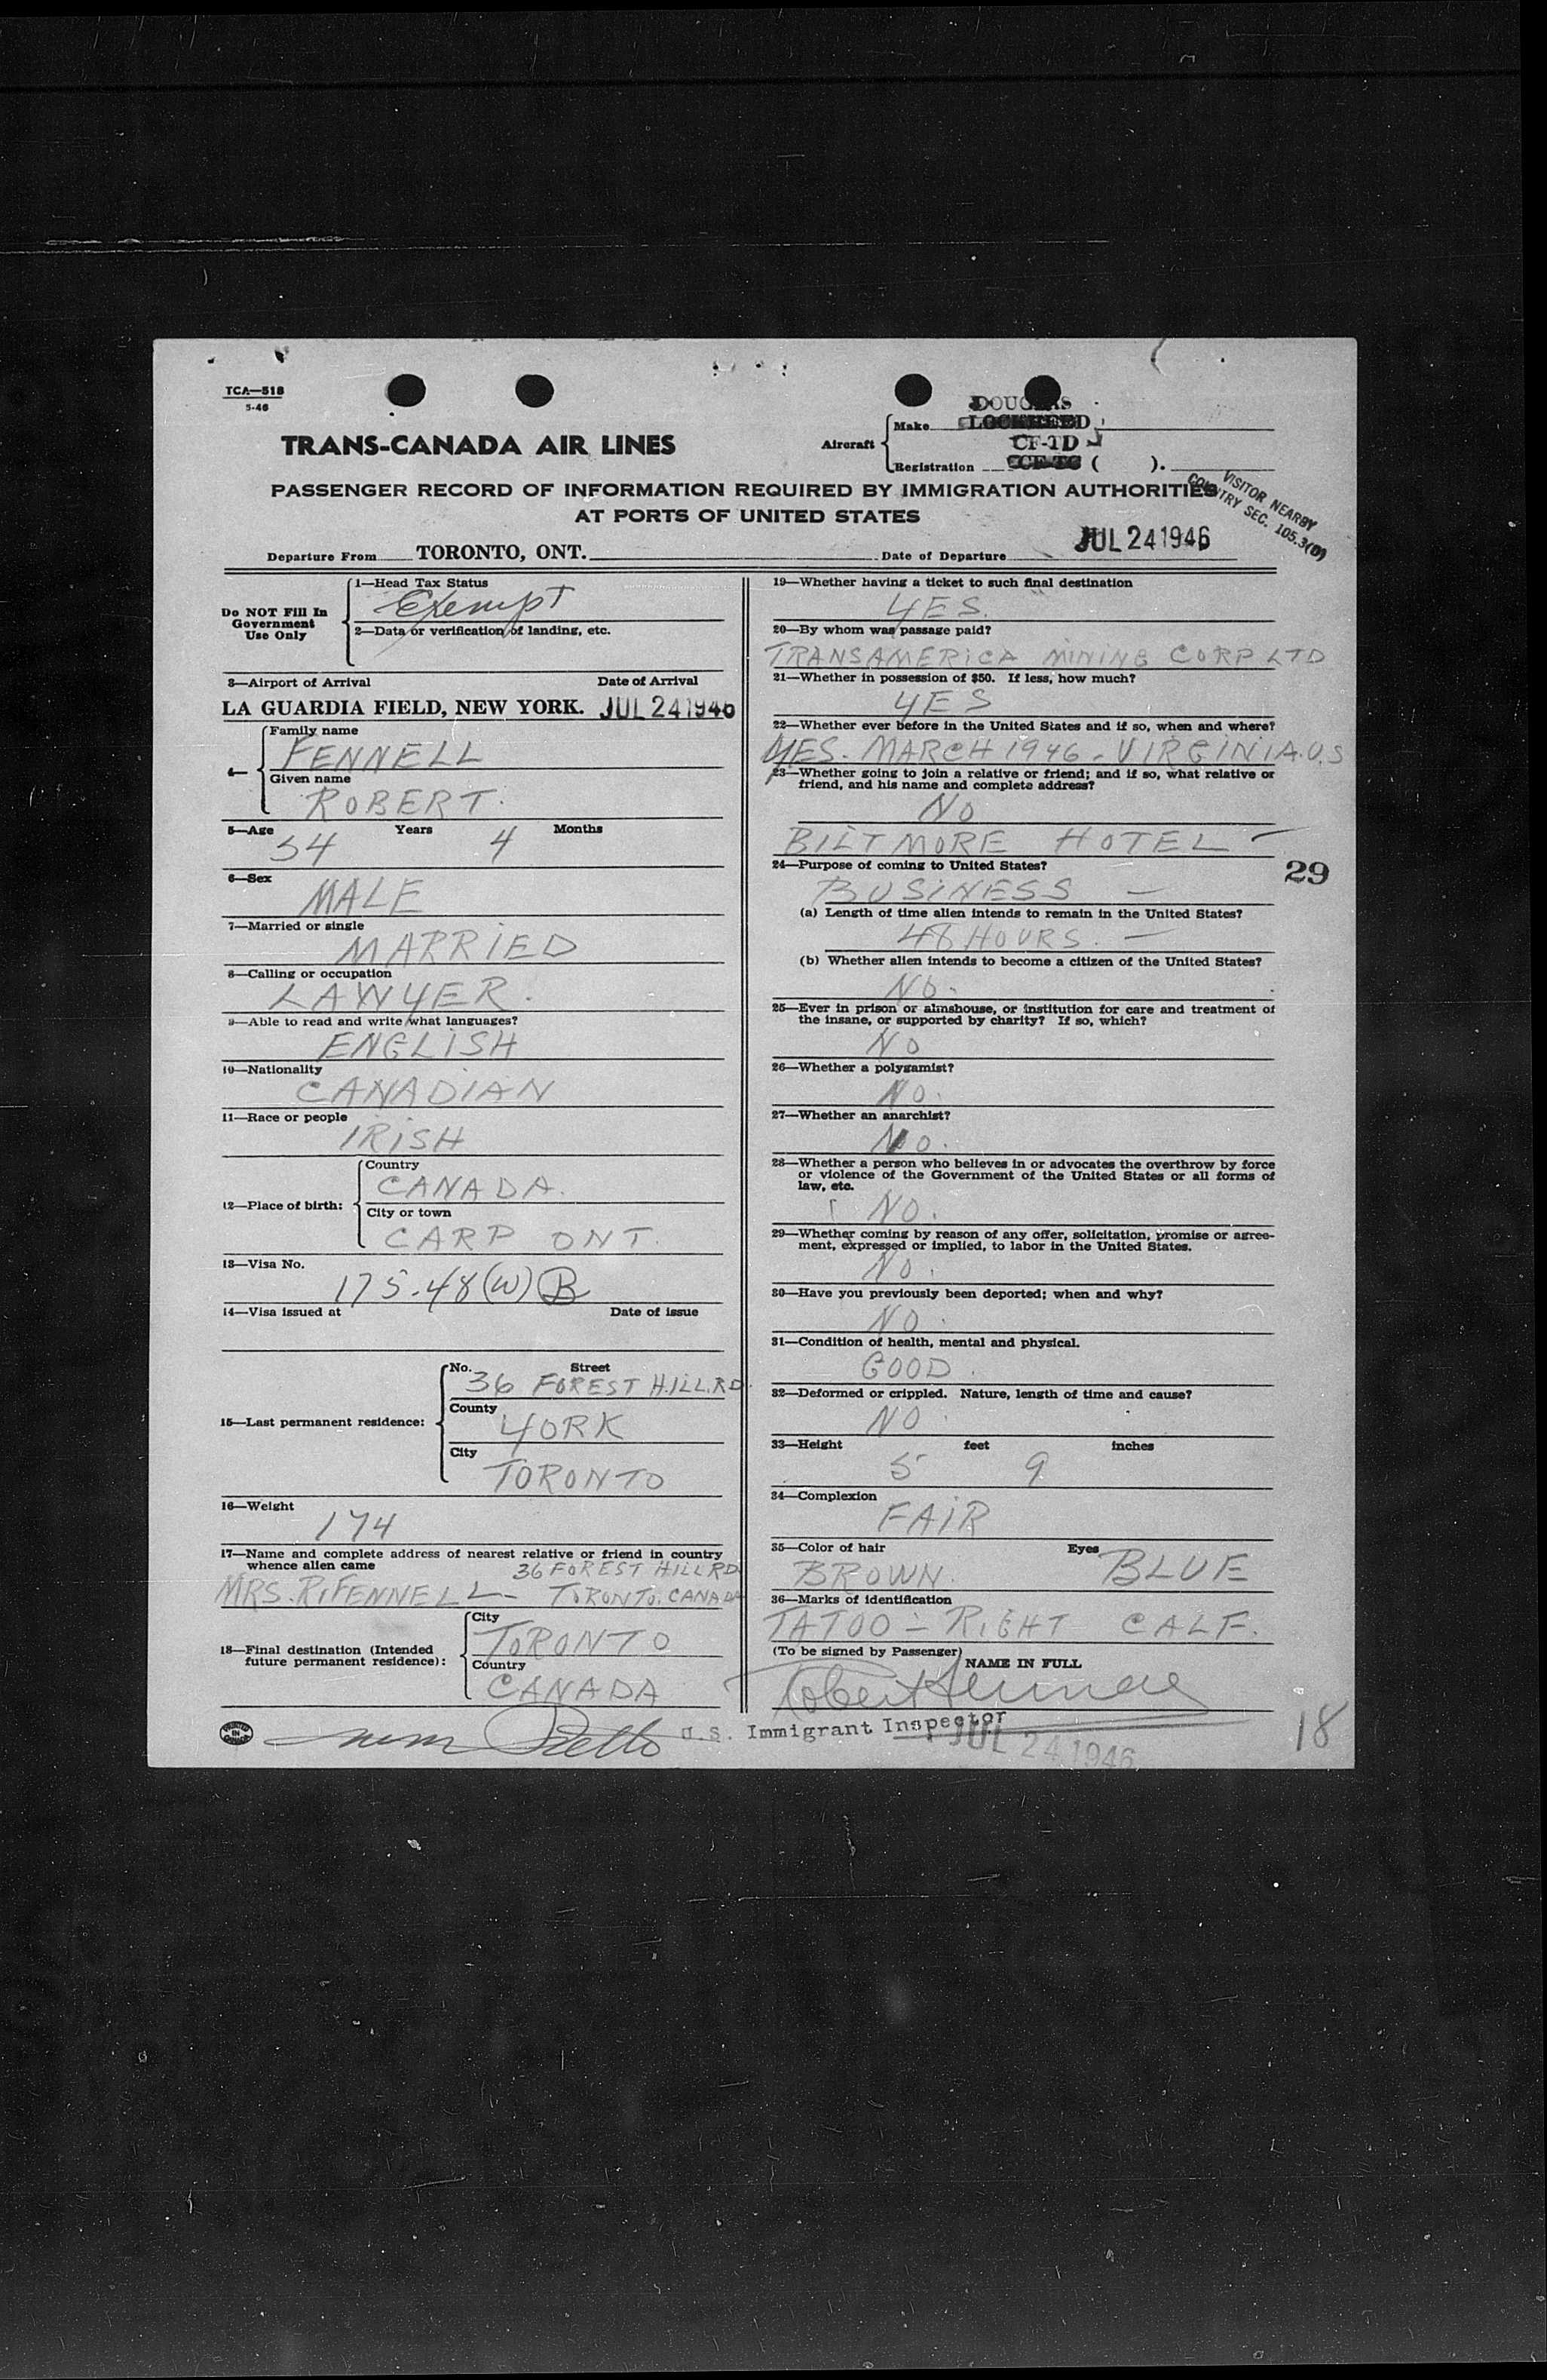 TCA—518
5-46
TRANS-CANADA AIR LINES
DOUGLAS
Aircraft
Make LOCKHEED
CF-TD
Registration CF-TC ( ).
PASSENGER RECORD OF INFORMATION REQUIRED BY IMMIGRATION AUTHORITIES
AT PORTS OF UNITED STATES
VISITOR NEARBY
COUNTRY SEC. 105.3(D)
Departure From TORONTO, ONT. Date of Departure JUL 24 1946
Do NOT Fill In
Government
Use Only
1—Head Tax Status
Exempt
2—Data or verification of landing, etc.
3—Airport of Arrival Date of Arrival
LA GUARDIA FIELD, NEW YORK. JUL 24 1946
4—
Family name
FENNELL
Given name
ROBERT.
5—Age Years Months
34 4
6—Sex
MALE
7—Married or single
MARRIED
8—Calling or occupation
LAWYER.
9—Able to read and write what languages?
ENGLISH
10—Nationality
CANADIAN
11—Race or people
IRISH
12—Place of birth:
Country
CANADA.
City or town
CARP ONT.
13—Visa No.
175.48(W) B
14—Visa issued at Date of issue
15—Last permanent residence:
No. Street
36 FOREST HILL.RD.
County
YORK
City
TORONTO
16—Weight
174
17—Name and complete address of nearest relative or friend in country
whence alien came 36 FOREST HILL RD.
MRS. R. FENNELL - TORONTO. CANADA
18—Final destination (Intended
future permanent residence):
City
TORONTO
Country
CANADA
19—Whether having a ticket to such final destination
YES.
20—By whom was passage paid?
TRANSAMERICA MINING CORP LTD
21—Whether in possession of $50. If less, how much?
YES
22—Whether ever before in the United States and if so, when and where?
YES. MARCH 1946 - VIRGINIA. U.S
23—Whether going to join a relative or friend; and if so, what relative or
friend, and his name and complete address?
NO
BILTMORE HOTEL -
29
24—Purpose of coming to United States?
BUSINESS -
(a) Length of time alien intends to remain in the United States?
48 HOURS. -
(b) Whether alien intends to become a citizen of the United States?
NO.
25—Ever in prison or almshouse, or institution for care and treatment of
the insane, or supported by charity? If so, which?
NO
26—Whether a polygamist?
NO.
27—Whether an anarchist?
NO.
28—Whether a person who believes in or advocates the overthrow by force
or violence of the Government of the United States or all forms of
law, etc.
NO.
29—Whether coming by reason of any offer, solicitation, promise or agree-
ment, expressed or implied, to labor in the United States.
NO.
30—Have you previously been deported; when and why?
NO.
31—Condition of health, mental and physical.
GOOD.
32—Deformed or crippled. Nature, length of time and cause?
NO.
33—Height feet inches
5 9
34—Complexion
FAIR
35—Color of hair Eyes
BROWN. BLUE
36—Marks of identification
TATOO - RIGHT CALF.
(To be signed by Passenger) NAME IN FULL
Robert Fennell
U.S. Immigrant Inspector
JUL 24 1946
18